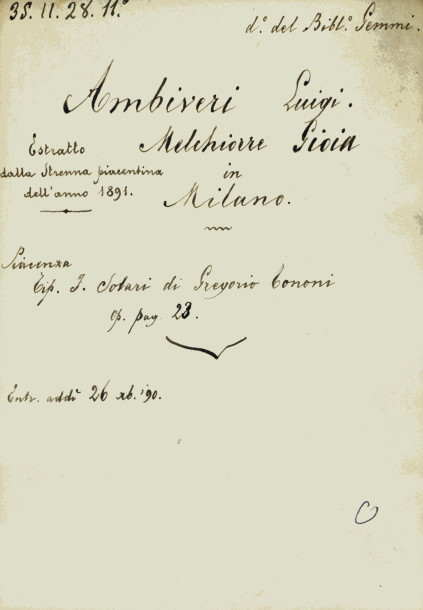 35. II. 28. 11.º
d.º del Bibl.º Gemmi.
Ambiveri Luigi.
Estratto
dalla Strenna piacentina
dell'anno 1891.
Melchiorre Gioia
in
Milano.
Piacenza
Tip. F. Solari di Gregorio Tononi
op. pag. 23.
Entr. addì 26 xb. '90.
C